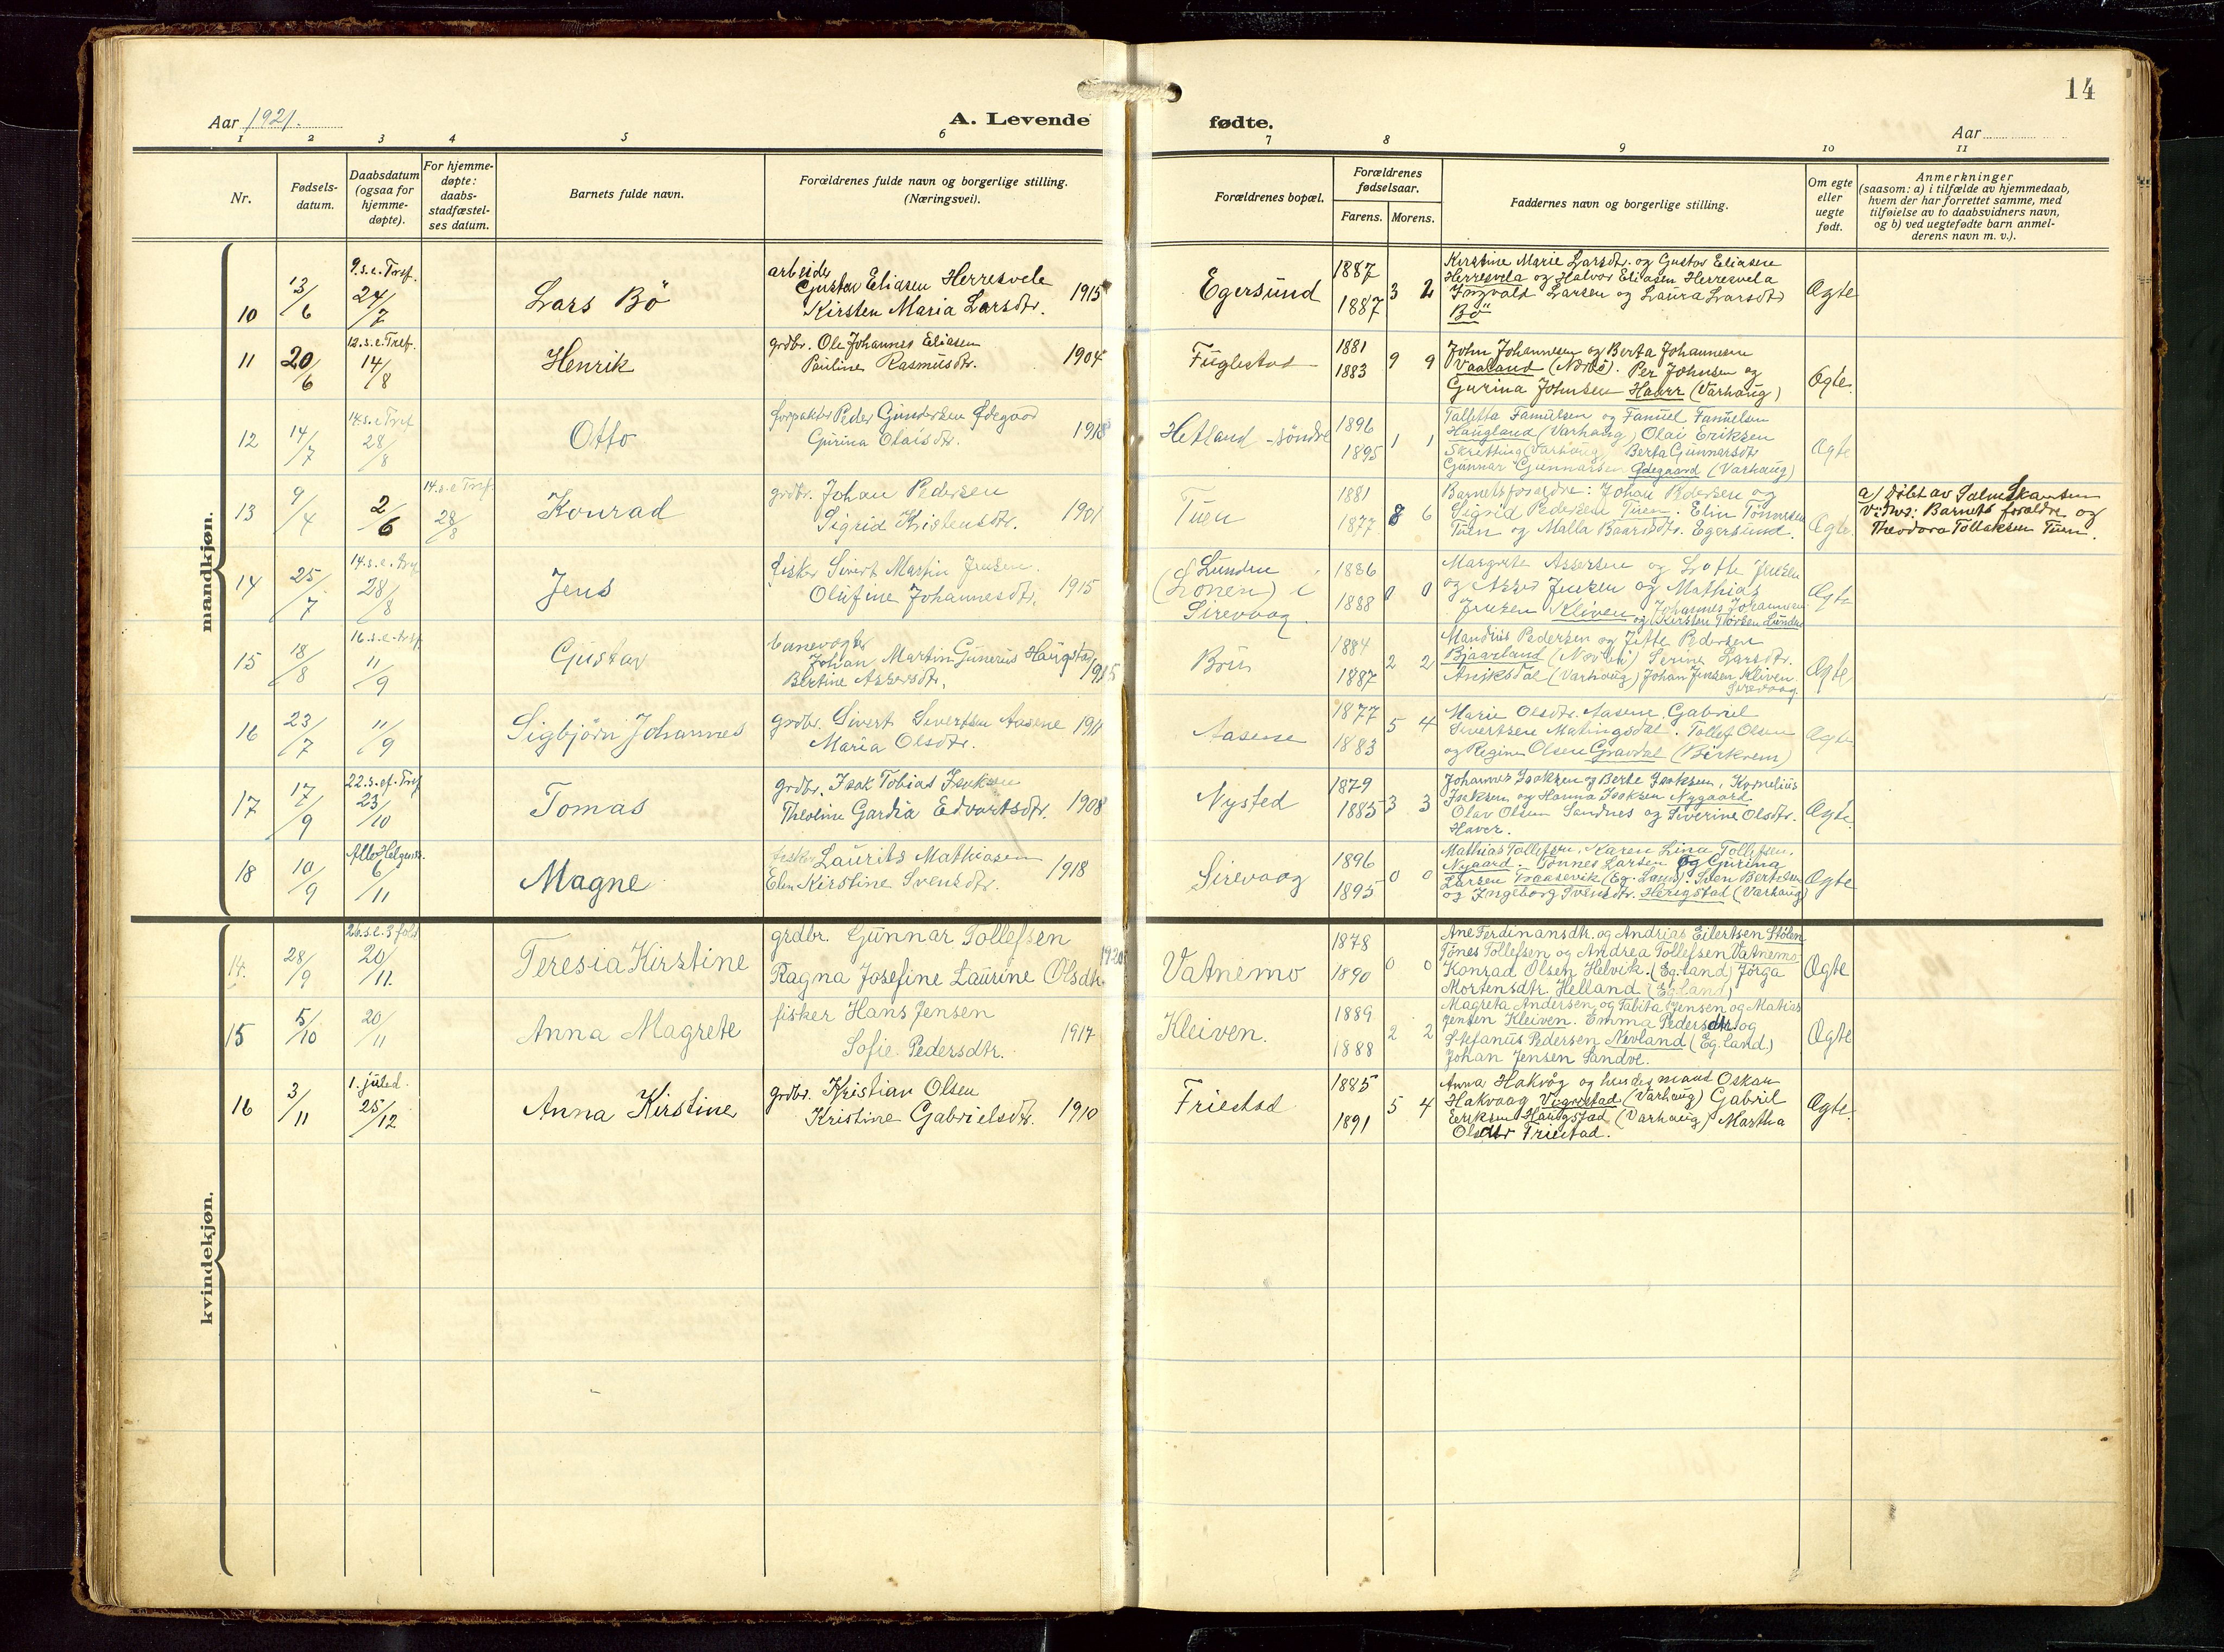 14
Aar 1921.
A. Levende fødte.
Aar
1 2 3 4 5 6 7 8 9 10 11
Nr.
Fødsels-
datum.
Daabsdatum
(ogsaa for
hjemme-
døpte).
For hjemme-
døpte:
daabs-
stadfæstel-
ses datum.
Barnets fulde navn.
Forældrenes fulde navn og borgerlige stilling.
(Næringsvei).
Forældrenes bopæl.
Forældrenes
fødselsaar.
Farens. Morens.
Faddernes navn og borgerlige stilling.
Om egte
eller
uegte
født.
Anmerkninger
(saasom: a) i tilfælde av hjemmedaab,
hvem der har forrettet samme, med
tilføielse av to daabsvidners navn,
og b) ved uegtefødte barn anmel-
derens navn m. v.).
mandkjøn.
10
13/6
9.s.e.Tref.
24/7
Lars Bö
arbeider
Gustav Eliasen Herresvela
Kirsten Maria Larsdtr.
1915
Egersund
1887
1887
3 2
Kirstine Marie Larsdtr. og Gustav Eliasen
Herresvela og Halvor Eliasen Herresvela
Ingvald Larsen og Laura Larsdtr
Bö
Ægte
11
20/6
12.s.e.Tref.
14/8
Henrik
grdbr. Ole Johannes Eliasen
Pauline Rasmusdtr.
1904
Fuglestad
1881
1883
9 9
John Johannesen og Berta Johannesen
Vaaland (Nærbö). Per Johnsen og
Gurina Johnsen Haarr (Varhaug)
Ægte.
12
14/7
14.s.e.Tref
28/8
Otto
forpakter Peder Gundersen Ødegaard
Gurina Olaisdtr.
1918
Hetland-söndre
1896
1895
1 1
Talletta Famuelsen og Fanuel Fanuelsen
Haugland (Varhaug) Olai Eriksen
Skretting (Varhaug) Berta Gunnarsdtr
Gunnar Gunnarsen Ødegaard (Varhaug)
Ægte
13
9/4
2/6
14.s.e.Tref.
28/8
Konrad
grdbr. Johan Pedersen
Sigrid Kristensdtr.
1901
Tuen
1881
1877
8 6
Barnets forældre: Johan Pedersen og
Sigrid Pedersen Tuen. Elin Tönnesen
Tuen og Malla Baardsdtr. Egersund.
Ægte.
a) Döbt av Salve Skantsen
Vidner: Barnets forældre og
Theodora Tollaksen Tuen.
14
25/7
14.s.e.tref
28/8
Jens
fisker Sivert Martin Jensen.
Olufine Johannesdtr.
1915
Lunden
(Lonen) i
Sirevaag.
1886
1888
0 0
Margrete Assersen og Lotte Jensen
og Asser Jensen og Mathias
Jensen Kleiven. Johannes Johannesen
og Kirsten Torsen Lunden
Ægte
15
18/8
16.s.e.tref
11/9
Gustav
banevogter
Johan Martin Gunerius Haugstad
Bertine Assersdtr.
1915
Brui
1884
1887
2 2
Mandius Pedersen og Jitte Pedersen
Bjaarland (Nærbö) Serine Larsdtr.
(Varhaug) Johan Jensen Kleiven
Sirevaag.
Ægte
16
23/7
11/9
Sigbjörn Johannes
grdbr. Sivert Sivertsen Aasene
Maria Olsdtr.
1911
Aasene
1877
1883
5 4
Marie Olsdtr. Aasene, Gabriel
Sivertsen Matingsdal. Tollef Olsen
og Regine Olsen Gravdal (Birkrem)
Ægte
17
17/9
22.s.ef.Tref
23/10
Tomas
grdbr. Isak Tobias Isaksen
Theoline Gardia Edvartsdtr.
1908
Nysted
1879
1885
3 3
Johannes Isaksen og Berte Isaksen, Kornelius
Isaksen og Hanna Isaksen Nygaard
Olav Olsen Sandnes og Siverine Olsdtr.
Haver.
Ægte.
18
10/9
Alle Helgens.
6/11
Magne
fisker Laurits Mathiasen
Elen Kirstine Svensdtr.
1918
Sirevaag
1896
1895
0 0
Mathias Tollefsen, Karen Lina Tollefsen,
Nygaard. Tönnes Larsen og Gurina
Larsen Traasevik (Eg. Land). Sven Bertelsen
og Ingeborg Svensdtr. Herigstad (Varhaug)
Ægte
kvindekjøn.
14.
28/9
26.s.e.3 fold
20/11.
Teresia Kirstine
grdbr. Gunnar Tollefsen
Ragna Josefine Laurine Olsdtr.
1920
Vatnemo
1878
1890
0 0
Ane Ferdinansdtr. og Andrias Eilertsen Stölen
Tönes Tollefsen og Andrea Tollefsen Vatnemo
Konrad Olsen Helvik. (Eg.land) Jörga
Mortensdtr. Helland (Eg.land)
Ægte
15
5/10
20/11
Anna Magrete
fisker Hans Jensen
Sofie Pedersdtr.
1917
Kleiven.
1889
1888
2 2
Magreta Andersen og Tabita Jensen og Matias
Jensen Kleiven. Emma Pedersdtr og
Stefanus Pedersen Nevland (Eg.land.)
Johan Jensen Sandve.
Ægte
16
3/11
1. juled.
25/12
Anna Kirstine
grdbr. Kristian Olsen
Kristine Gabrielsdtr.
1910
Friestad
1885
1891
5 4
Anna Hakvåg og hendes mand Oskar
Hakvaag Vigrestad (Varhaug) Gabriel
Eriksen Haugstad (Varhaug) Martha
Olsdtr Friestad.
Ægte.